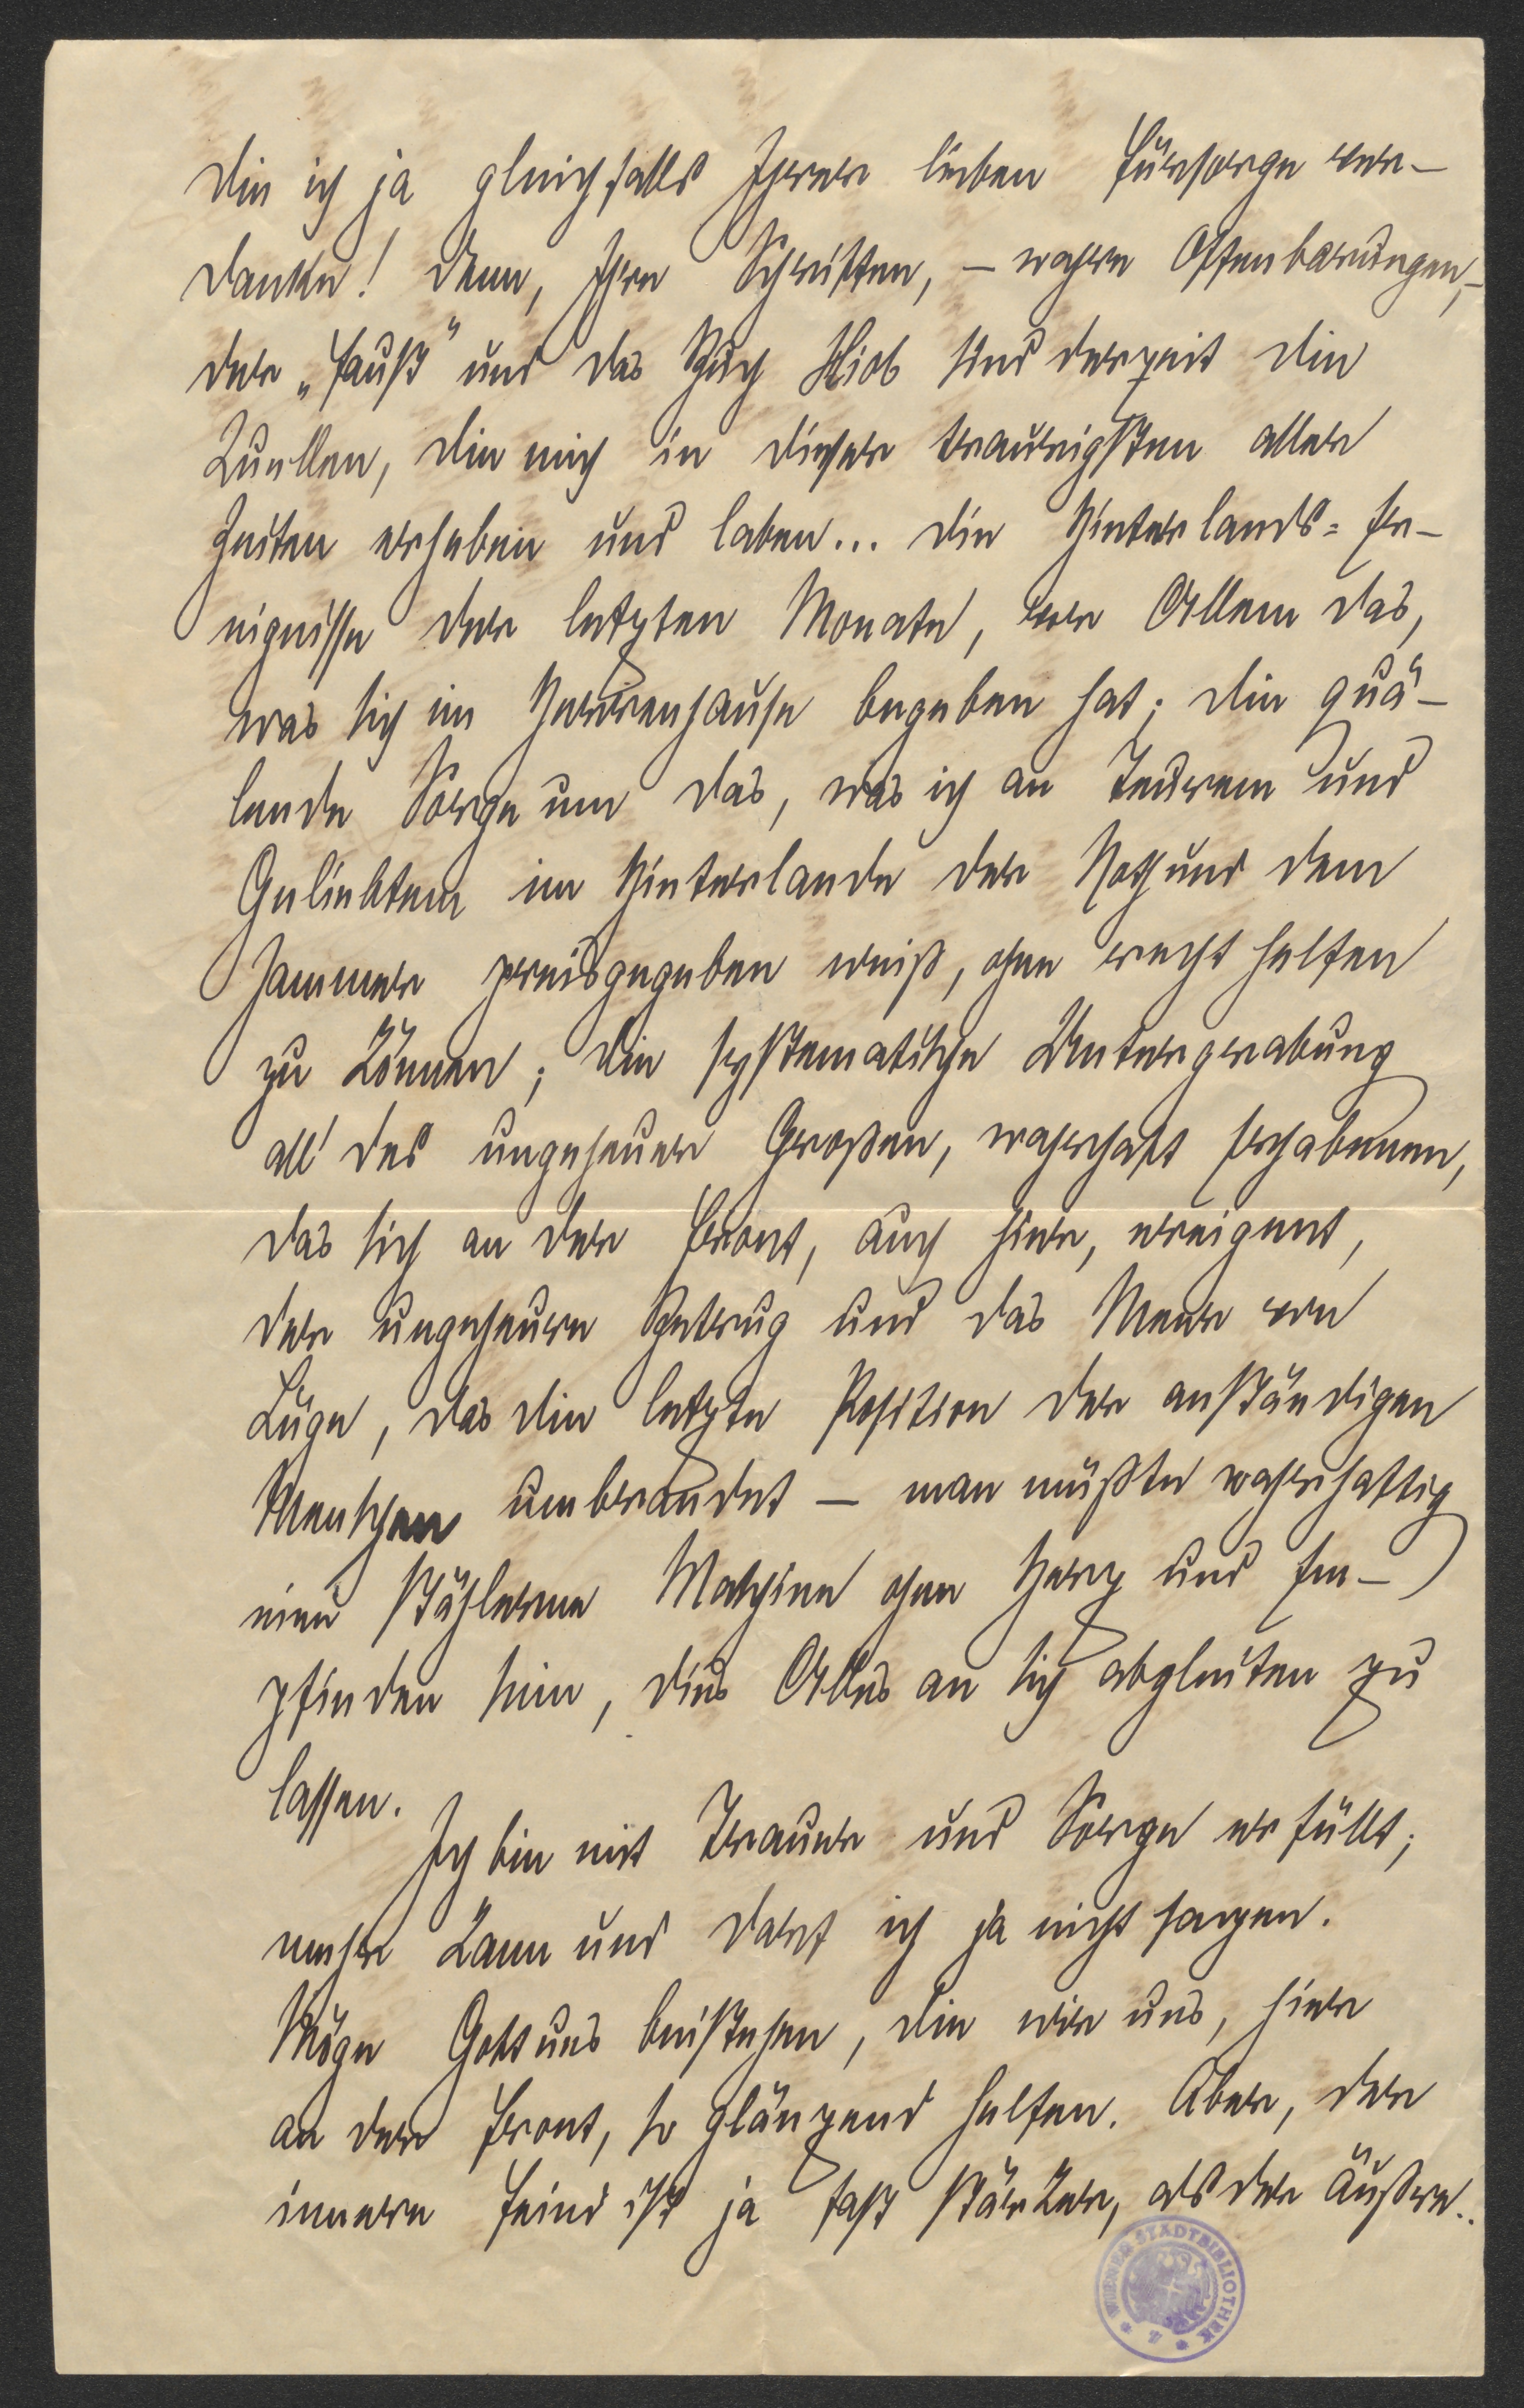 die ich ja gleichfalls Ihrer lieben Fürsorge ver-
danke! Denn, Ihre Schriften, – wahre Offenbarungen, –
der „Faust" und das Buch Hiob sind derzeit die
Quellen, die mich in dieser traurigsten aller
Zeiten erheben und laben... Die Hinterlands-Er-
eignisse der letzten Monate, vor Allem das,
was sich im Herrenhause begeben hat; die quä-
lende Sorge um das, was ich an Teurem und
Geliebtem im Hinterlande der Noth und dem
Jammer preisgegeben weiß, ohne recht helfen
zu können; die systematische Untergrabung
all' des ungeheuer Großen, wahrhaft Erhabenen,
das sich an der Front, auch hier, ereignet,
der ungeheure Betrug und das Meer von
Lüge, das die letzte Position der anständigen
Menschen umbrandet – man müßte wahrhaftig
eine stählerne Maschine ohne Herz und Em-
pfinden sein, dies Alles an sich abgleiten zu
lassen.
Ich bin mit Trauer und Sorge erfüllt;
mehr kann und darf ich ja nicht sagen.
Möge Gott uns beistehen, die wir uns, hier
an der Front, so glänzend helfen. Aber, der
innere Feind ist ja fast stärker, als der äußere..
WIENER STADTBIBLIOTHEK